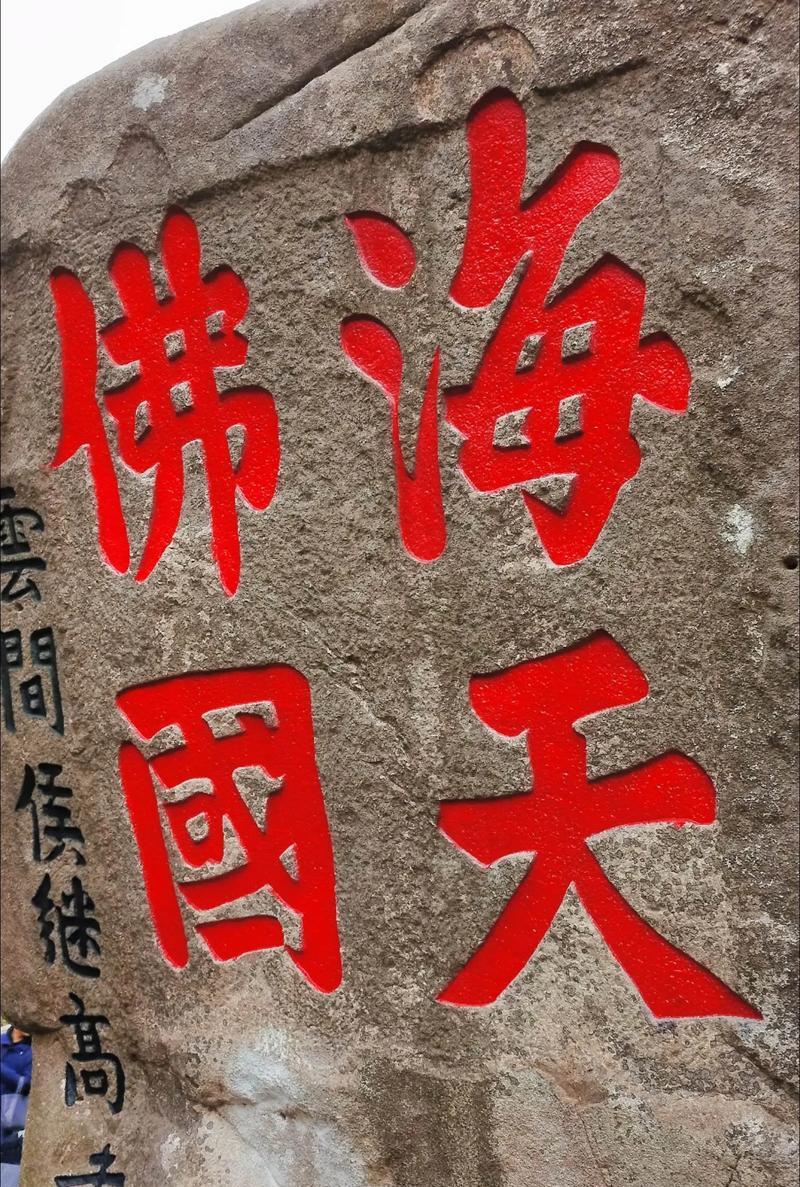 海天
佛國
雲間侯继高